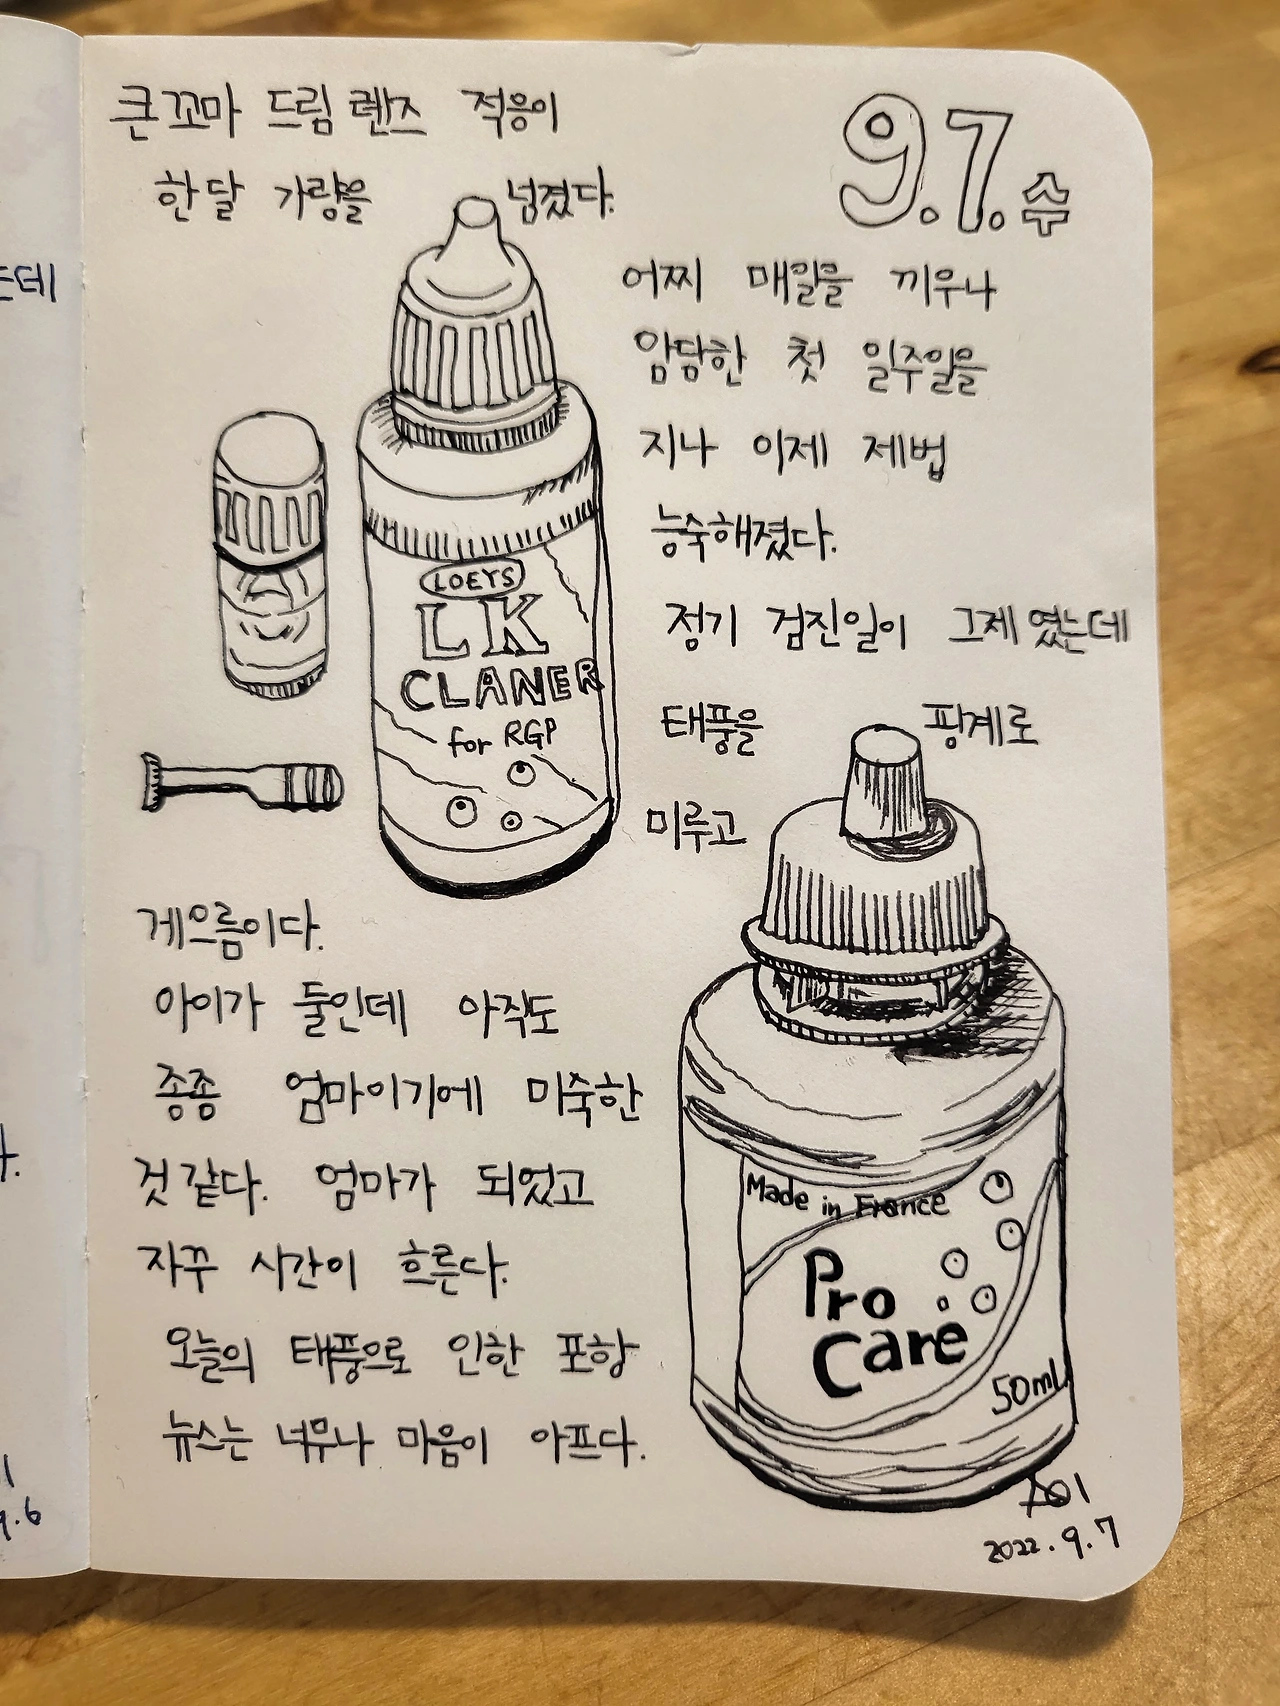 큰 꼬마 드림 렌즈 적응이
9.7.수
한 달 가량을 넘겼다.
어찌 매일을 끼우나
암담한 첫 일주일을
지나 이제 제법
능숙해졌다.
정기 검진일이 그제였는데
태풍을 핑계로
미루고
게으름이다.
아이가 둘인데 아직도
종종 엄마이기에 미숙한
것 같다. 엄마가 되었고
자꾸 시간이 흐른다.
오늘의 태풍으로 인한 포항
뉴스는 너무나 마음이 아프다.
LOEYS
LK
CLANER
for RGP
Made in France
Pro
Care
50ml
2022.9.7
는데
9.6